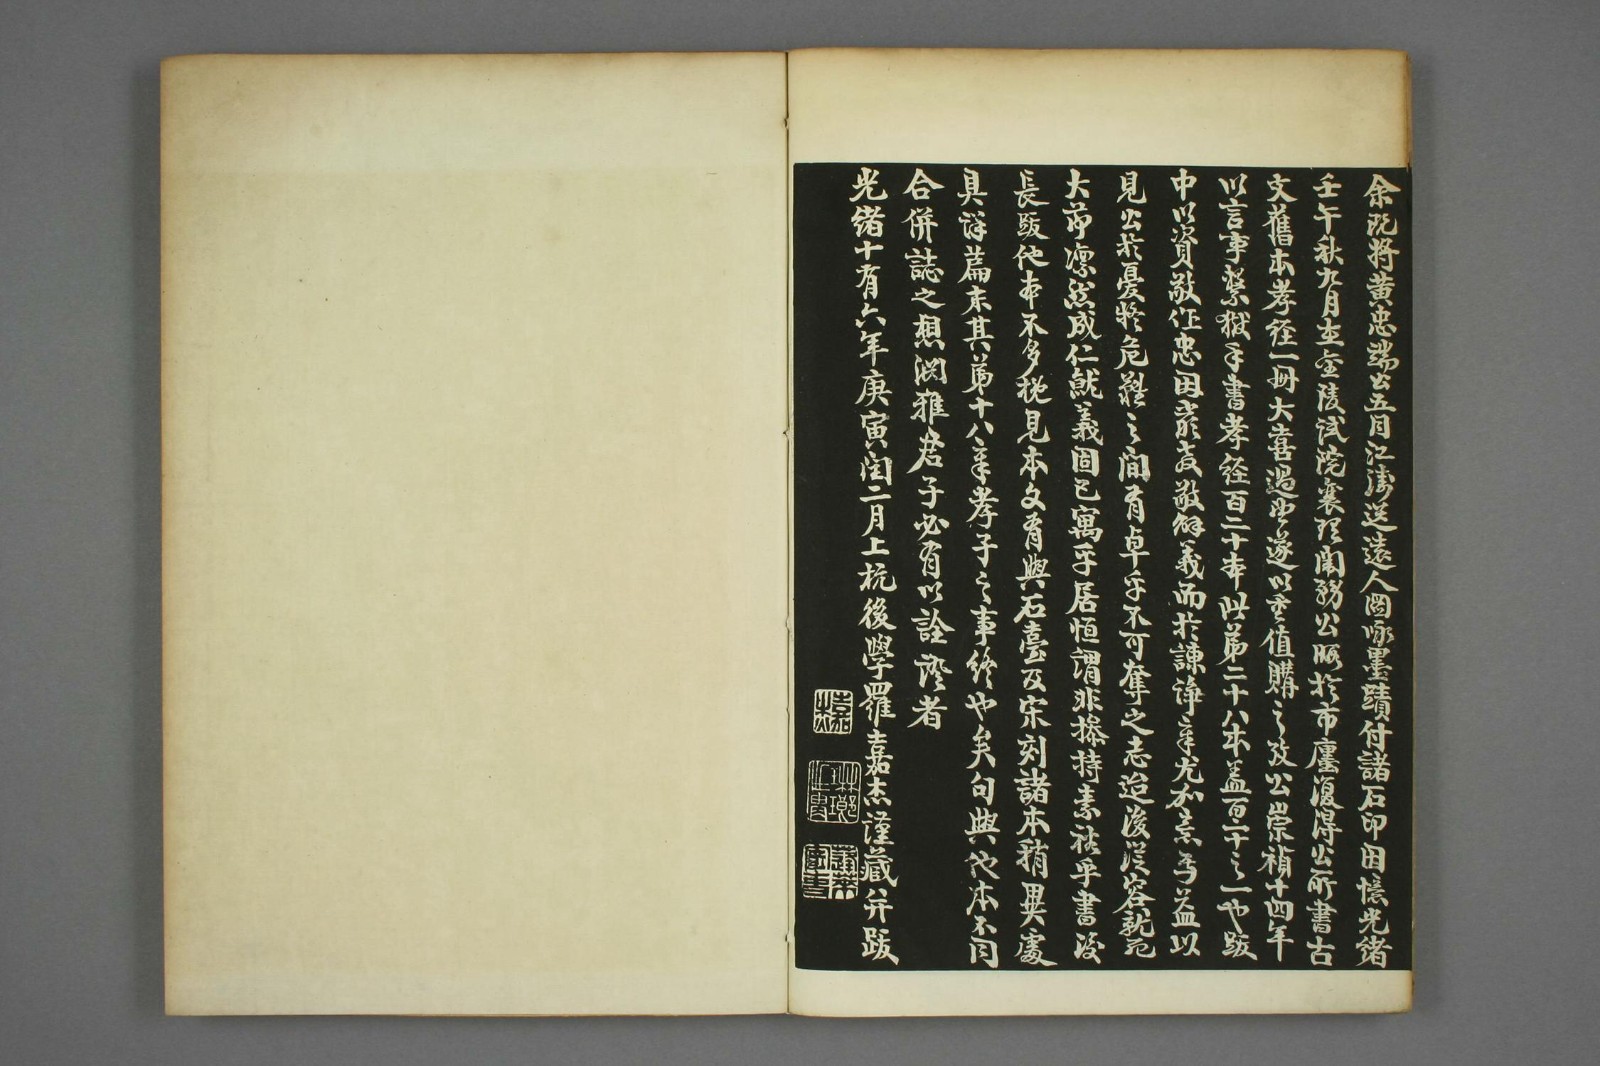 余既將黃忠端公五月江濤送遠人圖咏墨蹟付諸石印因憶光緒
壬午秋九月在金陵試院襄理闈務公暇於市廛復得公所書古
文舊本孝經一冊大喜過望遂以重值購之攷公崇禎十四年
以言事繫獄手書孝經百二十本此第二十八本蓋百二十之一也跋
中以資敬作忠因嚴教敬解義而於諫諍章尤加意焉益以
見公於憂患危難之間有卓乎不可奪之志迨後從容就死
大節凜然成仁就義固已寓乎居恒謂非操持素裕乎書後
長跋他本不多概見本文有與石臺及宋刻諸本稍異處
具詳篇末其第十八章孝子之事終也矣句與他本不同
合併誌之想淵雅君子必有以詮證者
光緒十有六年庚寅閏二月上杭後學羅嘉杰謹藏并跋
嘉杰